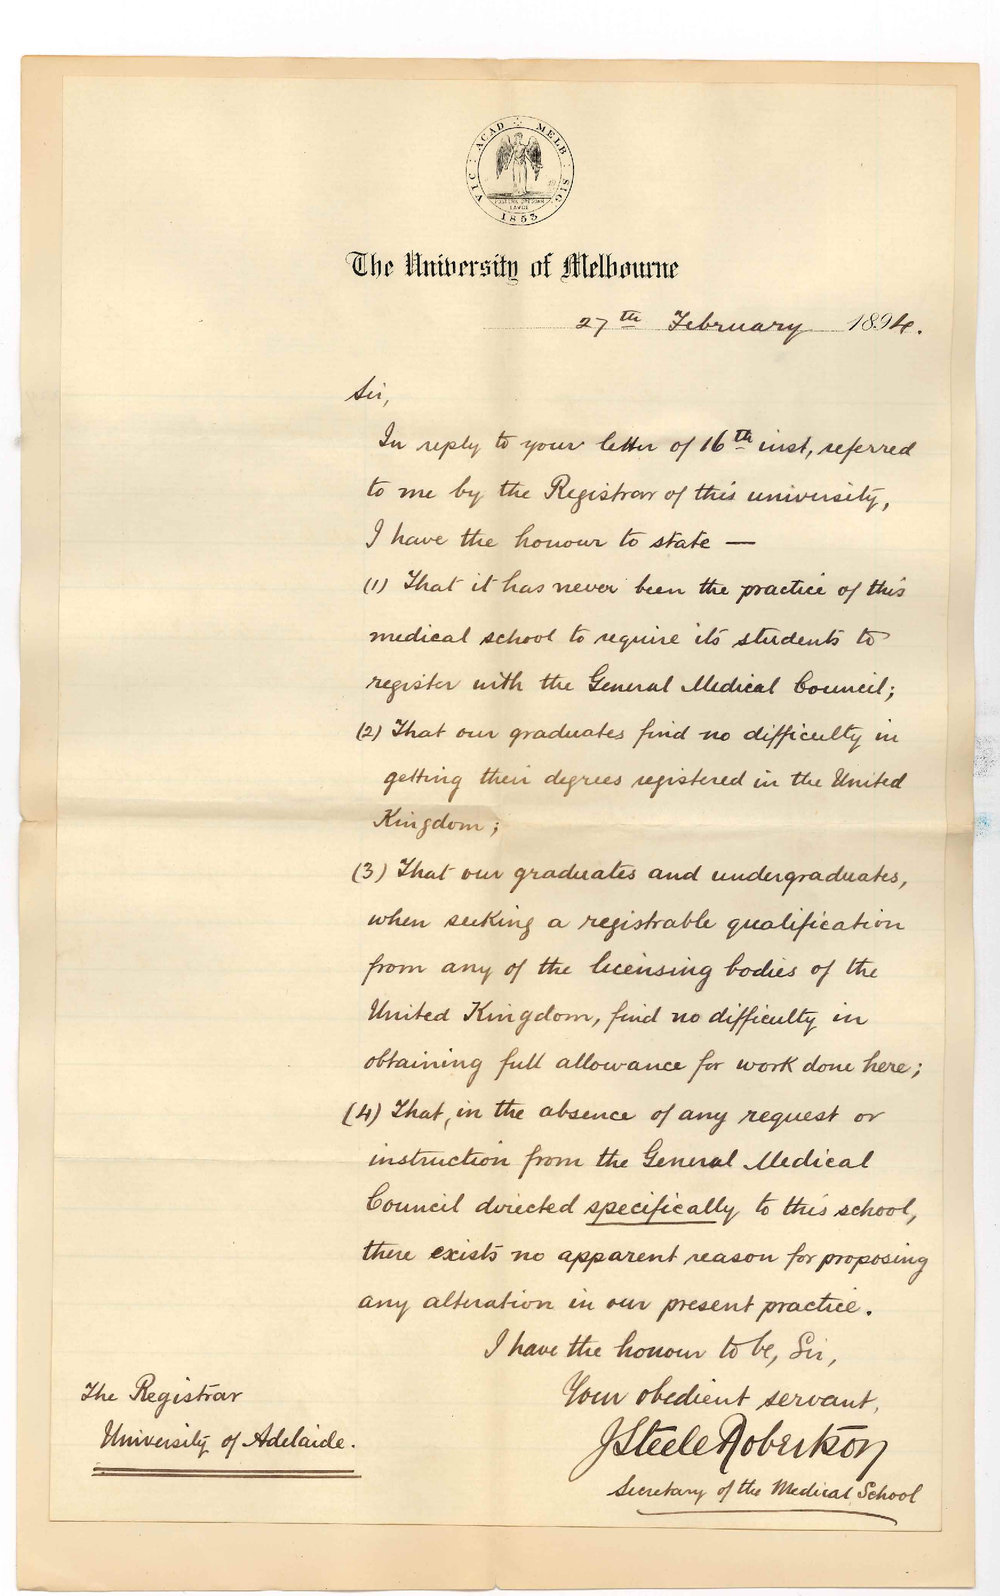 VIC : ACAD : MELB : SIG.
1853
The University of Melbourne
27th February 1894.
Sir,
In reply to your letter of 16th inst, referred
to me by the Registrar of this university,
I have the honour to state —
(1) That it has never been the practice of this
medical school to require its students to
register with the General Medical Council;
(2) That our graduates find no difficulty in
getting their degrees registered in the United
Kingdom;
(3) That our graduates and undergraduates,
when seeking a registrable qualification
from any of the licensing bodies of the
United Kingdom, find no difficulty in
obtaining full allowance for work done here;
(4) That, in the absence of any request or
instruction from the General Medical
Council directed specifically to this school,
there exists no apparent reason for proposing
any alteration in our present practice.
I have the honour to be, Sir,
Your obedient servant,
J Steele Robertson
Secretary of the Medical School
The Registrar
University of Adelaide.